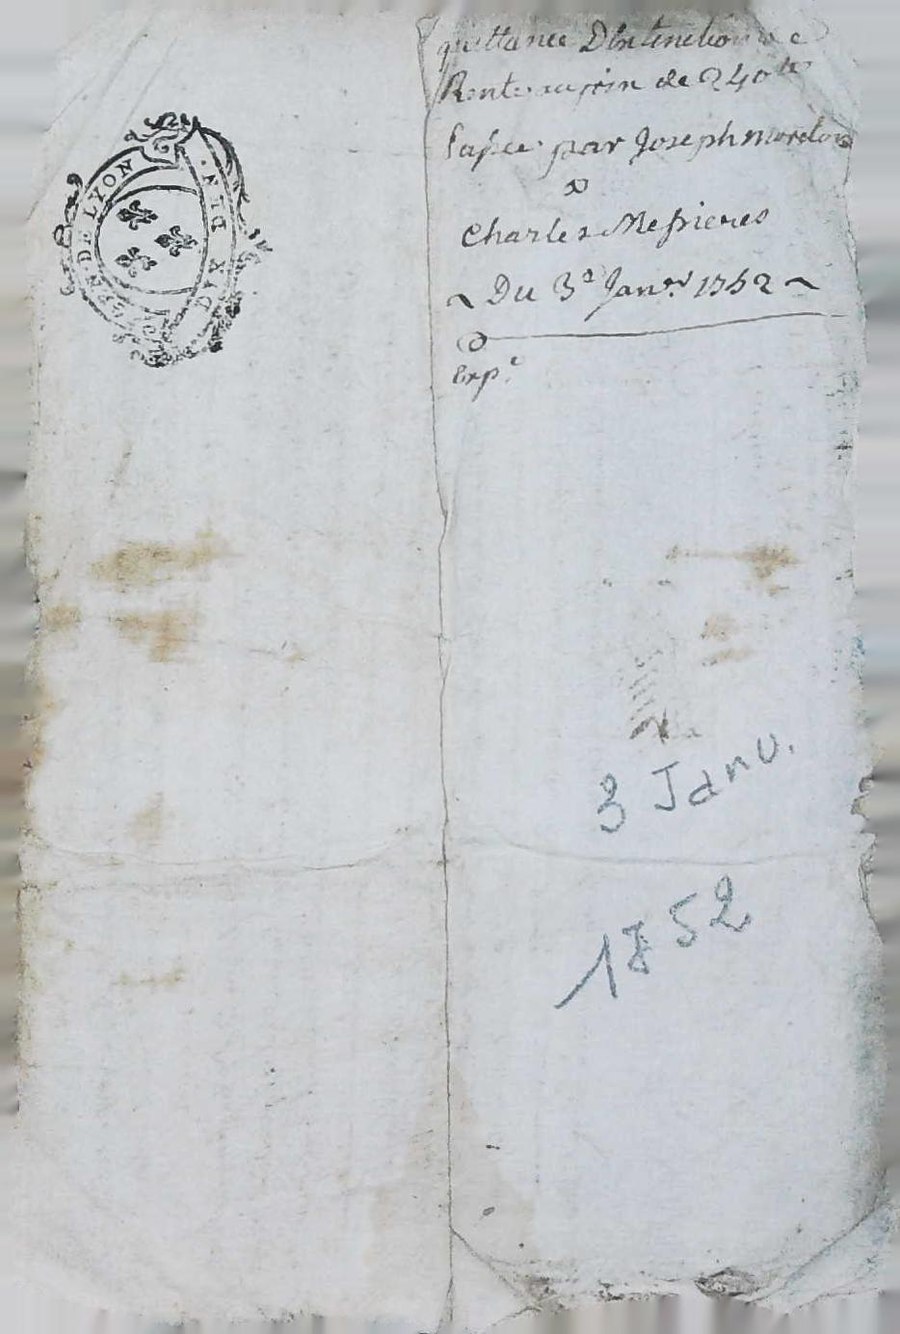 GEN. DE LYON
DIX DEN.
quittance D'extinction de
Rente au prin de 240 ₶
Passée par Joseph
a
Charles Messieres
~ Du 3e Janer 1752 ~
Expe
3 Janv.
1752